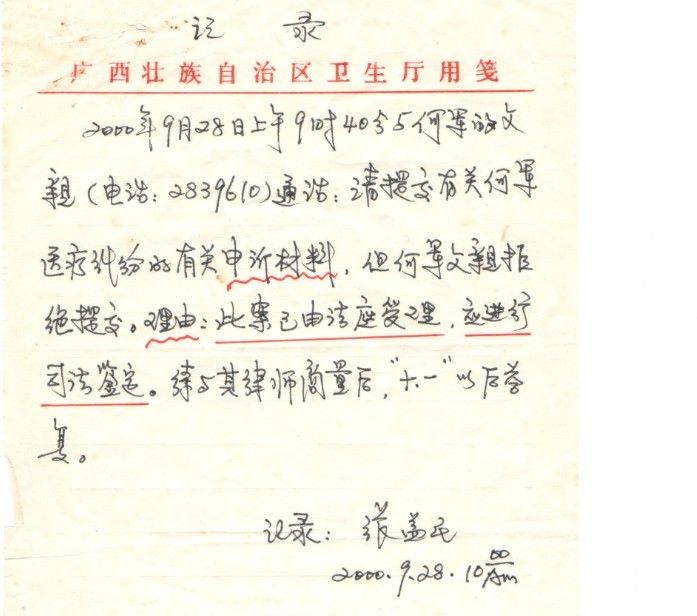 记 录
广西壮族自治区卫生厅用笺
2000年9月28日上午9时40分与何军的父
亲(电话:2839610)通话:请提交有关何军
医疗纠纷的有关申诉材料,但何军父亲拒
绝提交。理由:此案已由法庭受理,应进行
司法鉴定。待与其律师商量后,“十一”以后答
复。
记录:张益民
2000.9.28.10 00 Am